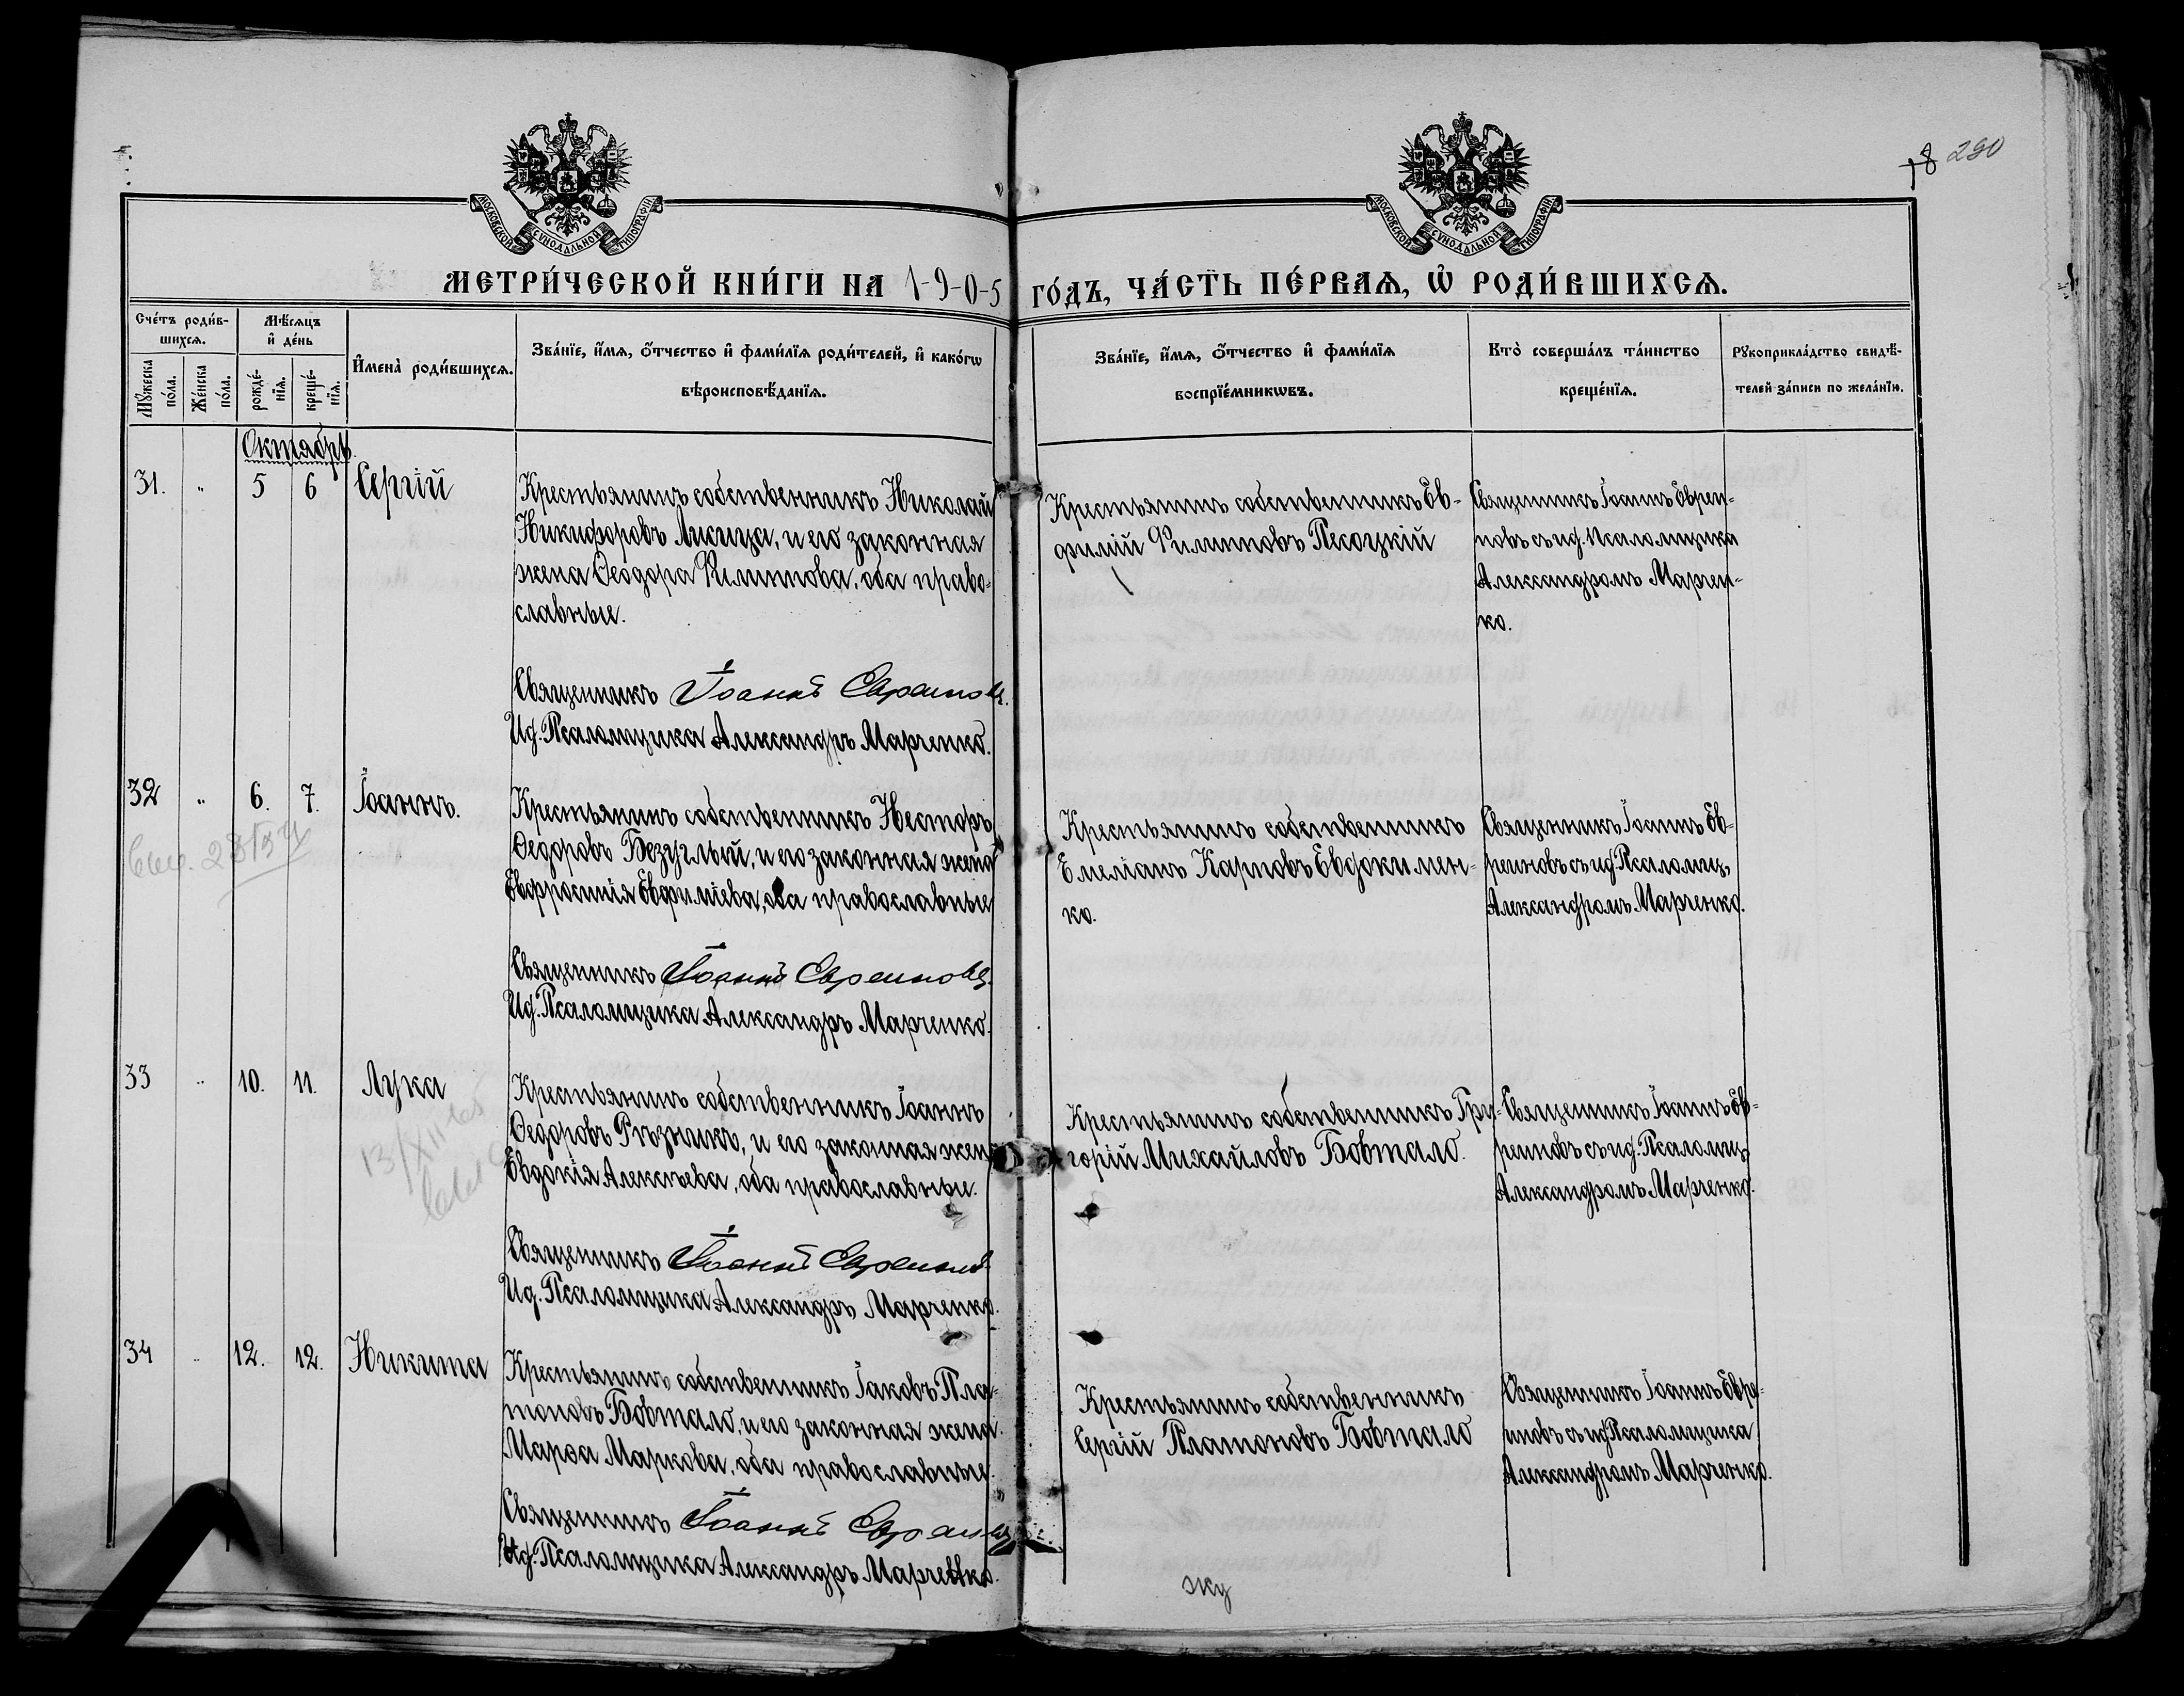 18 290
МОСКОВСКОЙ СѴНОДАЛЬНОЙ ТИПОГРАФІИ
МОСКОВСКОЙ СѴНОДАЛЬНОЙ ТИПОГРАФІИ
МЕТРИ́ЧЕСКОЙ КНИ́ГИ НА 1-9-0-5 ГО́ДЪ, ЧА́СТЬ ПЕ́РВАѦ, Ѡ҆ РОДИ́ВШИХСѦ.
Сче́тъ роди́в-
шихсѧ.
Мꙋ́жеска
по́ла.
Же́нска
по́ла.
Мѣ́сѧцъ
и҆ де́нь
рожде́-
нїѧ.
креще́-
нїѧ.
И҆мена̀ роди́вшихсѧ.
Зва́нїе, и҆́мѧ, ѻ҆́тчество и҆ фами́лїѧ роди́телей, и҆ како́гѡ
вѣроисповѣ́данїѧ.
Зва́нїе, и҆́мѧ, ѻ҆́тчество и҆ фами́лїѧ
воспрїе́мникѡвъ.
Кто̀ соверша́лъ та́инство
креще́нїѧ.
Рꙋкоприкла́дство свидѣ́-
телей за́писи по жела́нїю.
Октябрь.
31. " 5 6 Сергій
Крестьянинъ собственникъ Николай
Никифоровъ Лисица, и его законная
жена Ѳеодора Филиппова, оба право-
славные.
Священникъ Іоаннъ Евреиновъ.
Ид. Псаломщика Александръ Марченко.
Крестьянинъ собственникъ Ев-
фимій Филипповъ Песоцкій
Священникъ Іоаннъ Евреи-
новъ съ ид. Псаломщика
Александромъ Марчен-
ко.
32 " 6. 7. Іоаннъ.
Крестьянинъ собственникъ Несторъ
Ѳедоровъ Безуглый, и его законная жена
Евфросинія Евфиміева, оба православные
Священникъ Іоаннъ Евреиновъ
Ид. Псаломщика Александръ Марченко.
Крестьянинъ собственникъ
Емеліанъ Карповъ Евдокимен-
ко.
Священникъ Іоаннъ Ев-
реиновъ съ ид. Псаломщ.
Александромъ Марченко.
33 " 10. 11. Лука
Крестьянинъ собственникъ Іоаннъ
Ѳедоровъ Рѣзникъ, и его законная жена
Евдокія Алексѣева, оба православные.
Священникъ Іоаннъ Евреиновъ
Ид. Псаломщика Александръ Марченко.
Крестьянинъ собственникъ Гри-
горій Михайловъ Бовтало.
Священникъ Іоаннъ Ев-
реиновъ съ ид. Псаломщ.
Александромъ Марченко.
34 " 12. 12. Никита
Крестьянинъ собственникъ Іаковъ Пла-
тоновъ Бовтало, и его законная жена
Марѳа Маркова, оба православные.
Священникъ Іоаннъ Евреиновъ
Ид. Псаломщика Александръ Марченко.
Крестьянинъ собственникъ
Сергій Платоновъ Бовтало
Священникъ Іоаннъ Евре-
иновъ съ ид. Псаломщика
Александромъ Марченко.